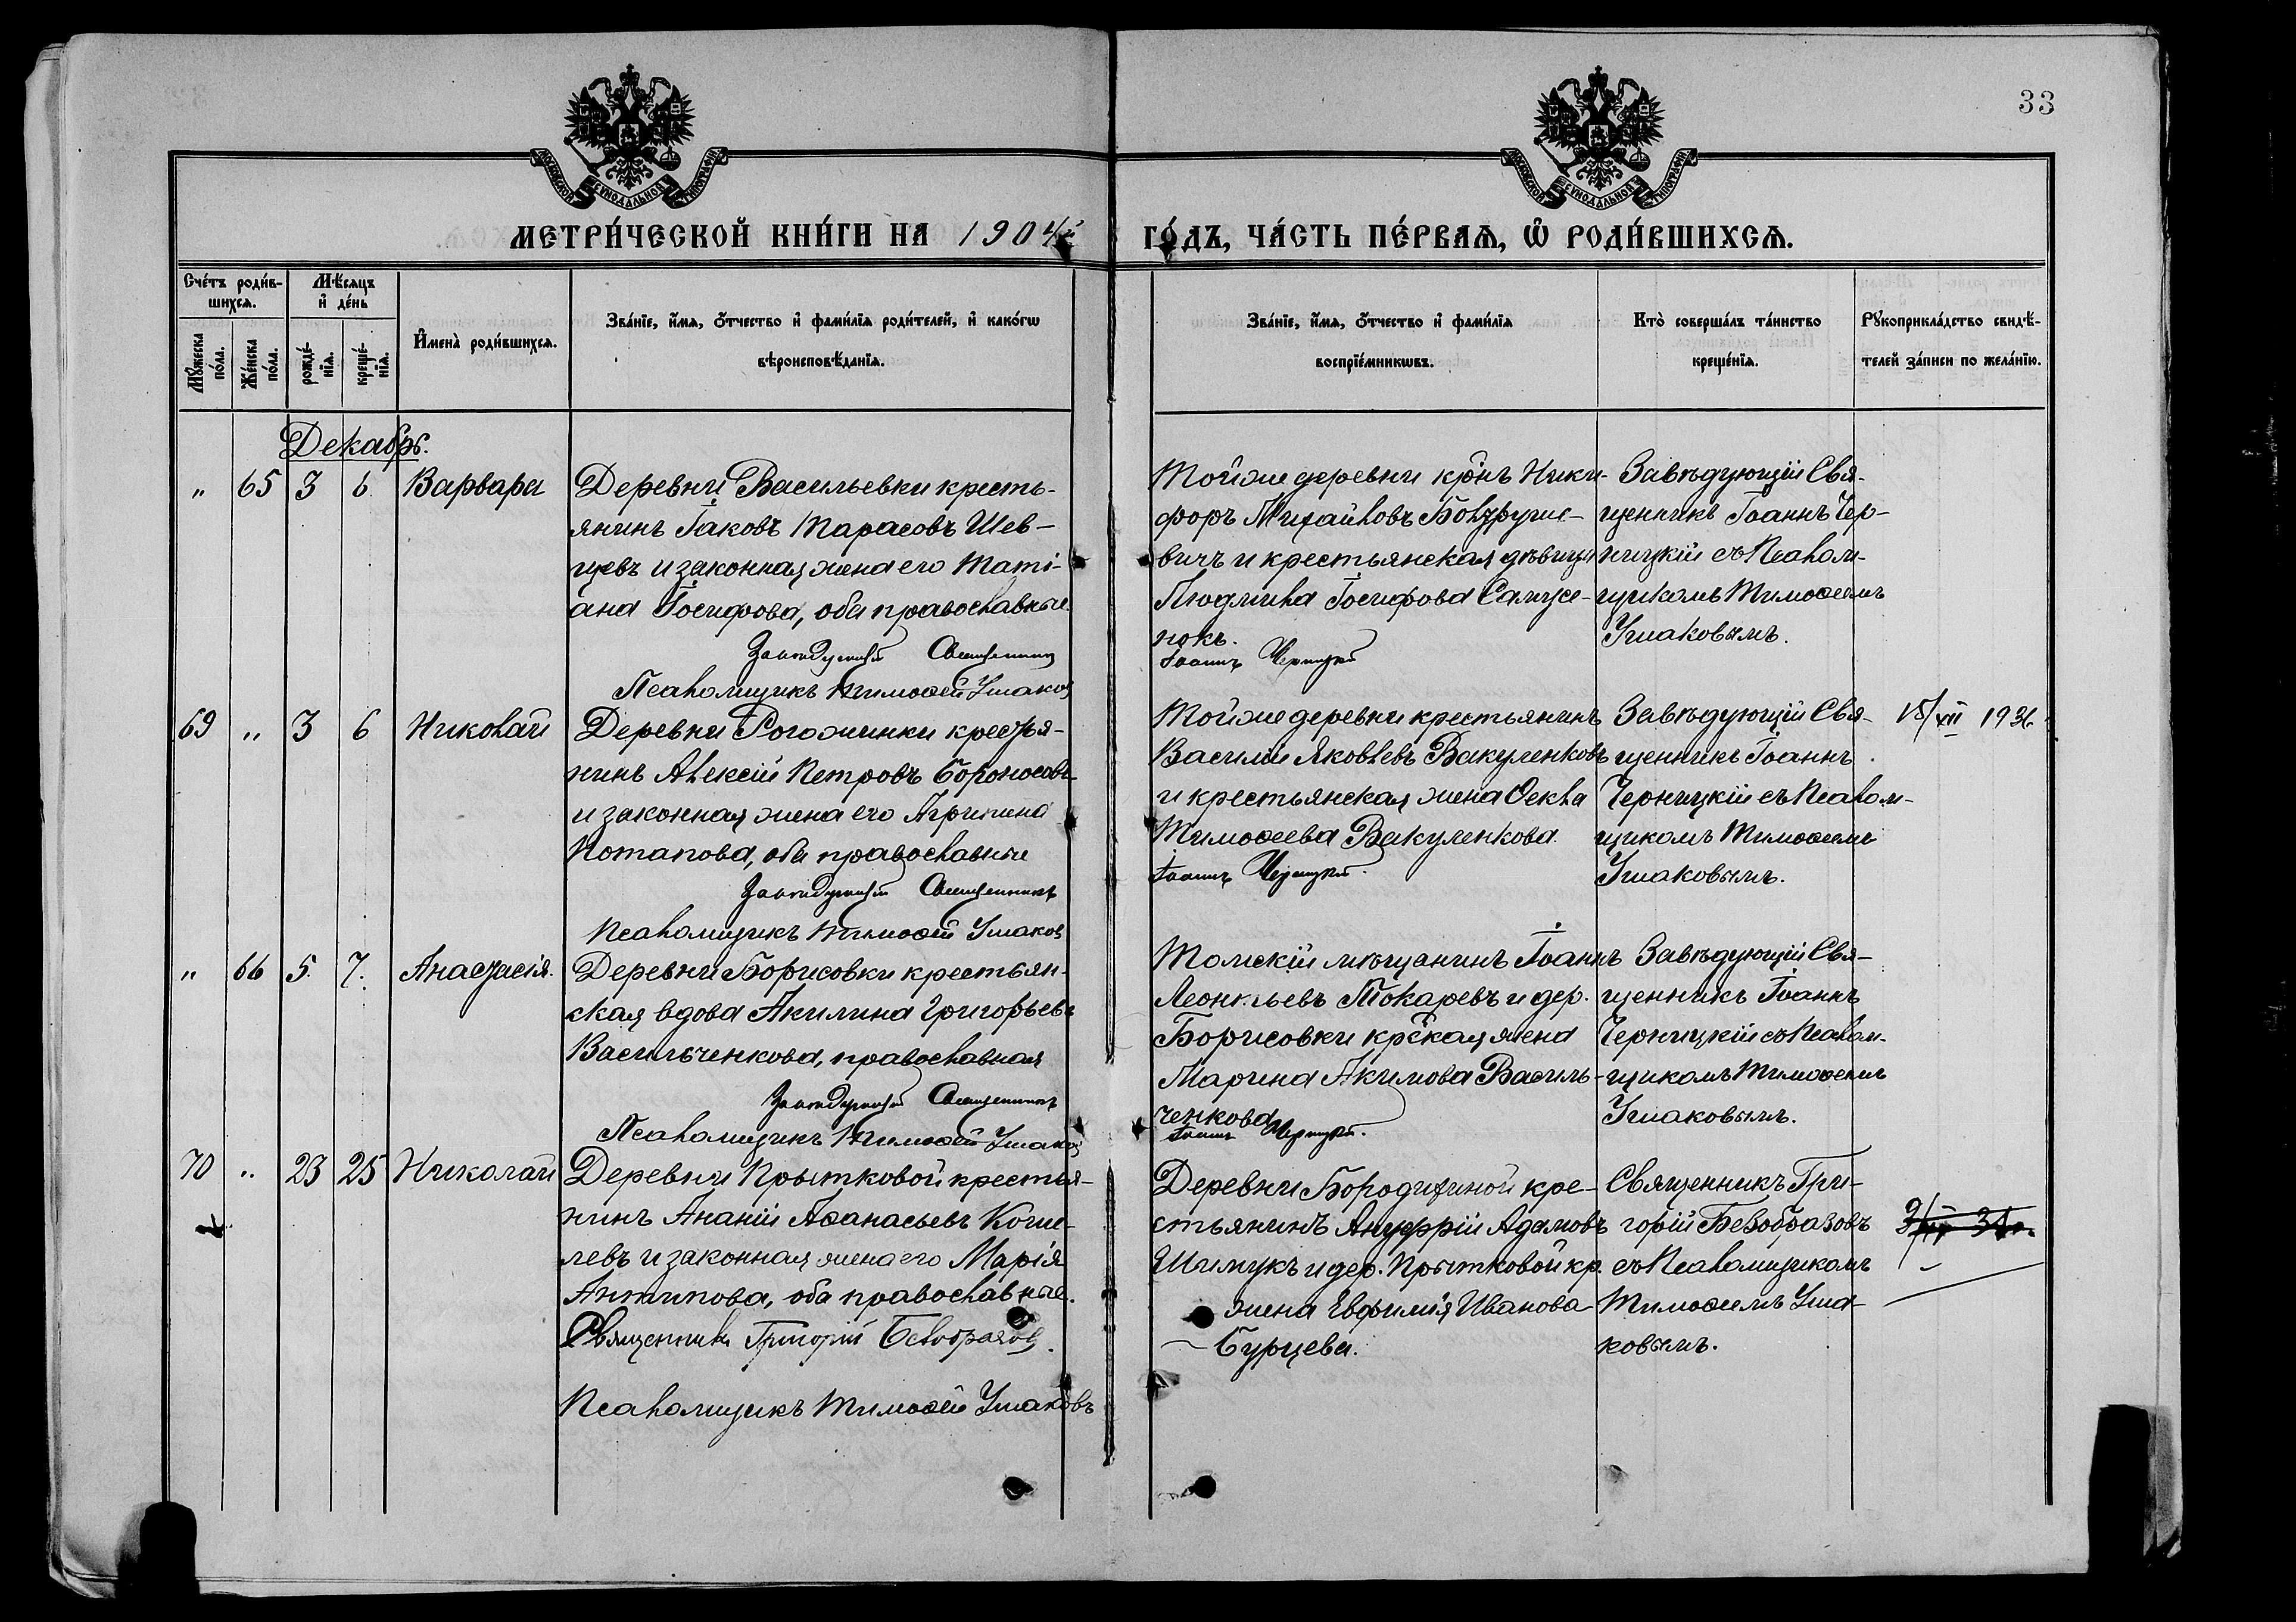 33
МОСКОВСКОЙ СѴНОДАЛЬНОЙ ТИПОГРАФІИ
МОСКОВСКОЙ СѴНОДАЛЬНОЙ ТИПОГРАФІИ
МЕТРИ́ЧЕСКОЙ КНИ́ГИ НА 1904й ГО́ДЪ, ЧА́СТЬ ПЕ́РВАѦ, Ѽ РОДИ́ВШИХСѦ.
Сче́тъ роди́в-
шихсѧ.
Мѣ́сѧцъ
и҆ де́нь
Мꙋ́жеска по́ла.
Же́нска по́ла.
рожде́-
нїѧ.
креще́-
нїѧ.
И҆мена̀ роди́вшихсѧ.
Зва́нїе, и҆́мѧ, ѻ҆́тчество и҆ фами́лїѧ роди́телей, и҆ како́гѡ
вѣроисповѣ́данїѧ.
Зва́нїе, и҆́мѧ, ѻ҆́тчество и҆ фами́лїѧ
воспрїе́мникѡвъ.
Кто̀ соверша́лъ та́инство
креще́нїѧ.
Рꙋкоприкла́дство свидѣ́-
телей за́писи по жела́нїю.
Декабрь.
„ 65 3 6 Варвара
Деревни Васильевки кресть-
янинъ Іаковъ Тарасовъ Шев-
цевъ и законная жена его Таті-
ана Іосифова, оба православные.
Завѣдующій Священникъ
Псаломщикъ Тимоѳей Ушаковъ
Тойже деревни кр̃нъ Ники-
форъ Михайловъ
вичъ и крестьянская дѣвица
Людмила Іосифова
нокъ.
Іоаннъ Черницкій
Завѣдующій Свя-
щенникъ Іоаннъ Чер-
ницкій съ Псалом-
щикомъ Тимоѳеемъ
Ушаковымъ.
69 „ 3 6 Николай
Деревни Рогожинки крестья-
нинъ Алексій Петровъ Бороносовъ
и законная жена его Агрипина
Потапова, оба православные
Завѣдующій Священникъ
Псаломщикъ Тимоѳей Ушаковъ
Тойже деревни крестьянинъ
Василій Яковлевъ Вакуленковъ
и крестьянская жена Ѳекла
Тимоѳеева Вакуленкова.
Іоаннъ Черницкій.
Завѣдующій Свя-
щенникъ Іоаннъ
Черницкій съ Псалом-
щикомъ Тимоѳеемъ
Ушаковымъ.
15/XII 1936
„ 66 5. 7. Анастасія.
Деревни Борисовки крестьян-
ская вдова Акилина Григорьева
Васильченкова, православная
Завѣдующій Священникъ
Псаломщикъ Тимоѳей Ушаковъ
Томскій мѣщанинъ Іоаннъ
Леонтьевъ Токаревъ и дер.
Борисовки кр̃ская жена
Марина Акимова Василь-
ченкова
Іоаннъ Черницкій.
Завѣдующій Свя-
щенникъ Іоаннъ
Черницкій съ Псалом-
щикомъ Тимоѳеемъ
Ушаковымъ.
70 „ 23 25 Николай
Деревни Прытковой крестья-
нинъ Ананій Аѳанасьевъ Коше-
левъ и законная жена его Марія
Антипова, оба православные.
Священникъ Григорій Безобразовъ.
Псаломщикъ Тимоѳей Ушаковъ
Деревни Бородихиной кре-
стьянинъ Ануфрій Адамовъ
Шимукъ и дер. Прытковой кр.
жена Евфимія Иванова
Бурцева.
Священникъ Гри-
горій Безобразовъ
съ Псаломщикомъ
Тимоѳеемъ Уша-
ковымъ.